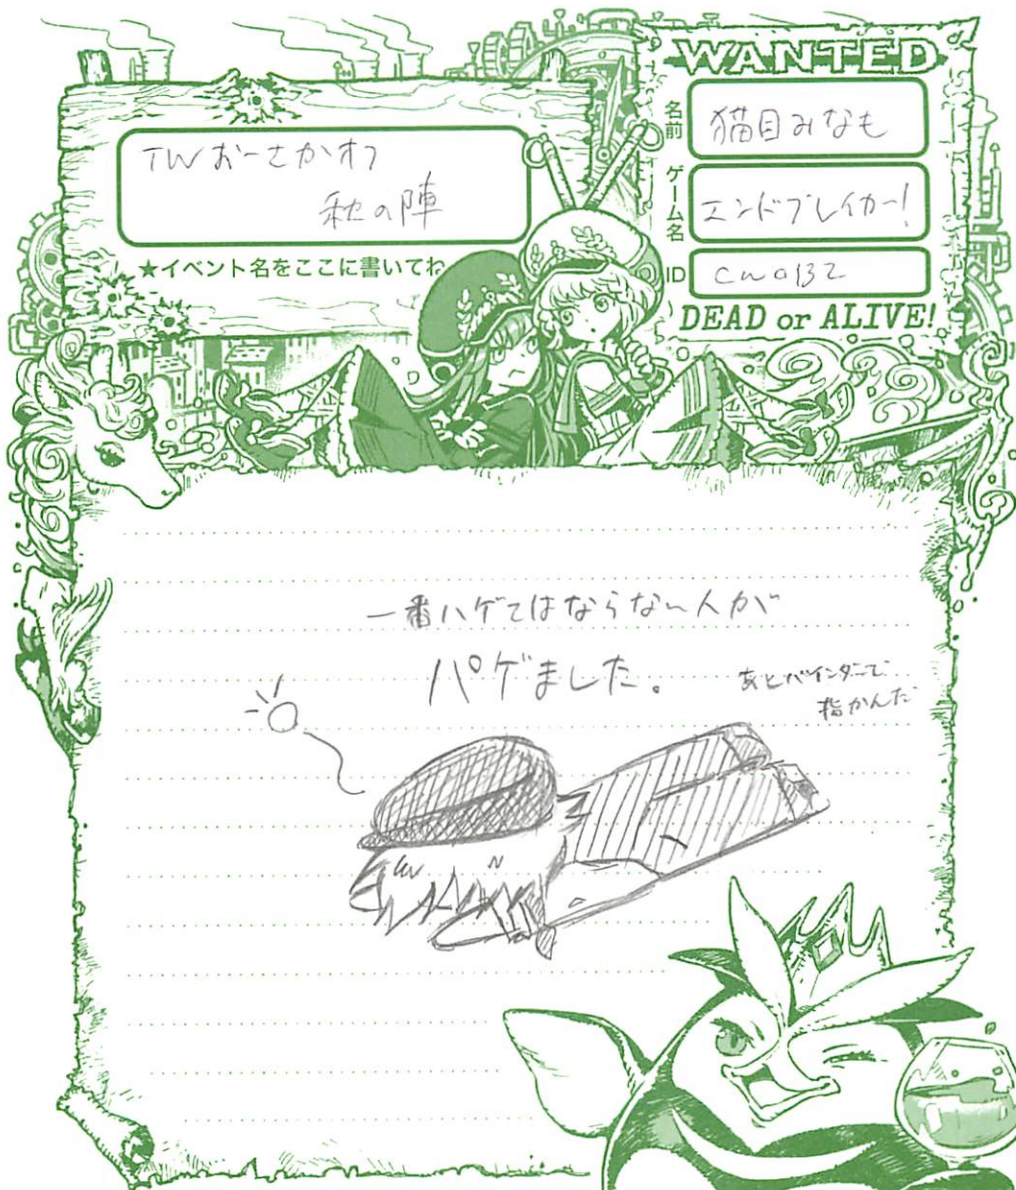 WANTED
TWおーさかオフ
秋の陣
★イベント名をここに書いてね
名前
猫目みなも
ゲーム名
エンドブレイカー!
ID
cn0132
DEAD or ALIVE!
一番ハゲてはならない人が
パゲました。
あとバインダーで
指かんだ